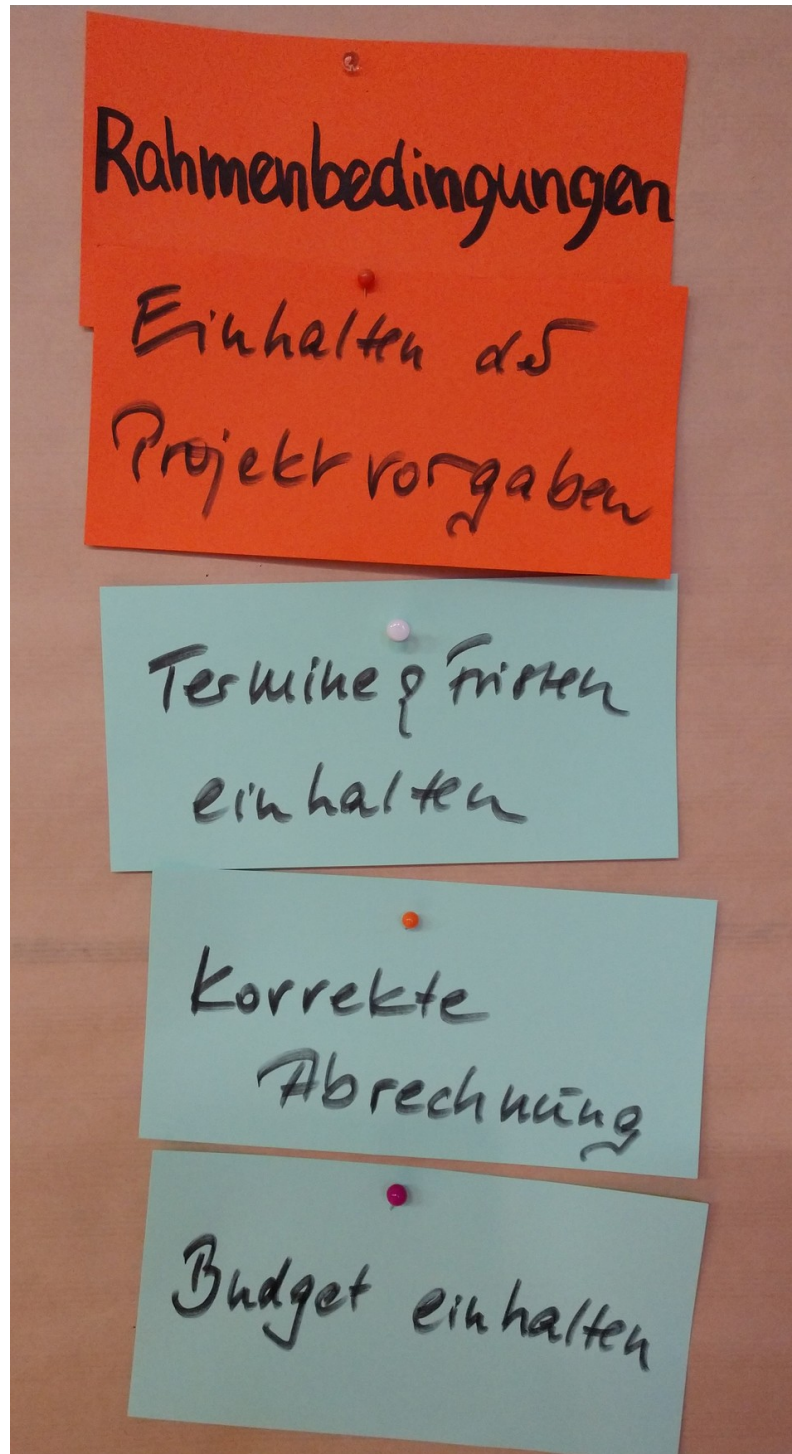 Rahmenbedingungen
Einhalten der
Projektvorgaben
Termine & Fristen
einhalten
Korrekte
Abrechnung
Budget einhalten